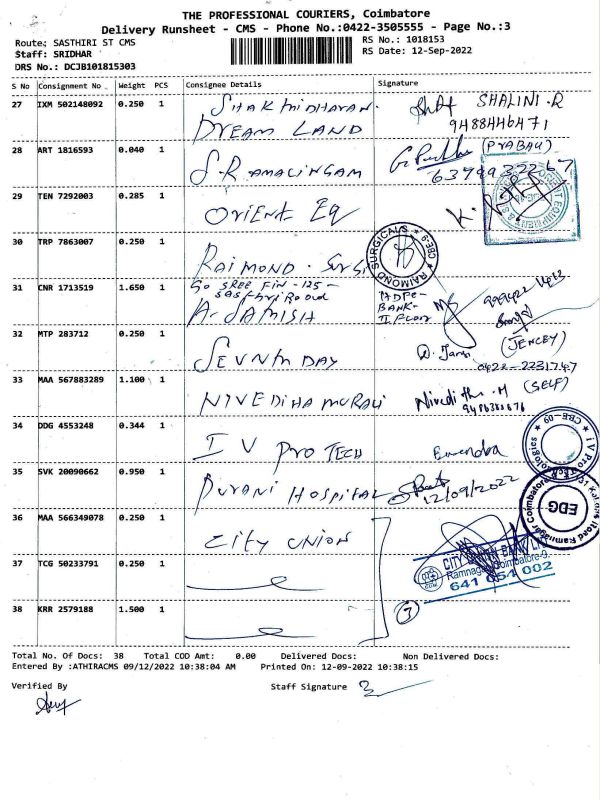 THE PROFESSIONAL COURIERS, Coimbatore
Delivery Runsheet - CMS - Phone No.:0422-3505555 - Page No.:3
Route: SASTHIRI ST CMS
RS No.: 1018153
Staff: SRIDHAR
RS Date: 12-Sep-2022
DRS No.: DCJB101815303
S No Consignment No Weight PCS Consignee Details Signature
27 IXM 502148092 0.250 1
DREAM LAND
SHALINI.R
9488446471
28 ART 1816593 0.040 1 S.RAMALINGAM
(PRABAU)
6379932267
29 TEN 7292003 0.285 1 ORIENT EQ
30 TRP 7863007 0.250 1 RAIMOND. SURGI
RAIMOND SURGICALS CBE-9
31 CNR 1713519 1.650 1 GO SREE FIN -125-
A. JAMISH
HDFC-
BANK-
II Floor
32 MTP 283712 0.250 1 SEVNTH DAY
(JENCEY)
0422-2231747
33 MAA 567883289 1.100 1 NIVEDIHA MURALI
(SELF)
34 DDG 4553248 0.344 1 I V PRO TECH
35 SVK 20090662 0.950 1 PURANI HOSPITAL
12/09/2022
EDG
36 MAA 566349078 0.250 1 CITY UNION
CITY UNION BANK LTD
Ramnagar, Coimbatore-9.
641 054 002
37 TCG 50233791 0.250 1
38 KRR 2579188 1.500 1
3
Total No. Of Docs: 38 Total COD Amt: 0.00 Delivered Docs: Non Delivered Docs:
Entered By :ATHIRACMS 09/12/2022 10:38:04 AM Printed On: 12-09-2022 10:38:15
Verified By
Staff Signature